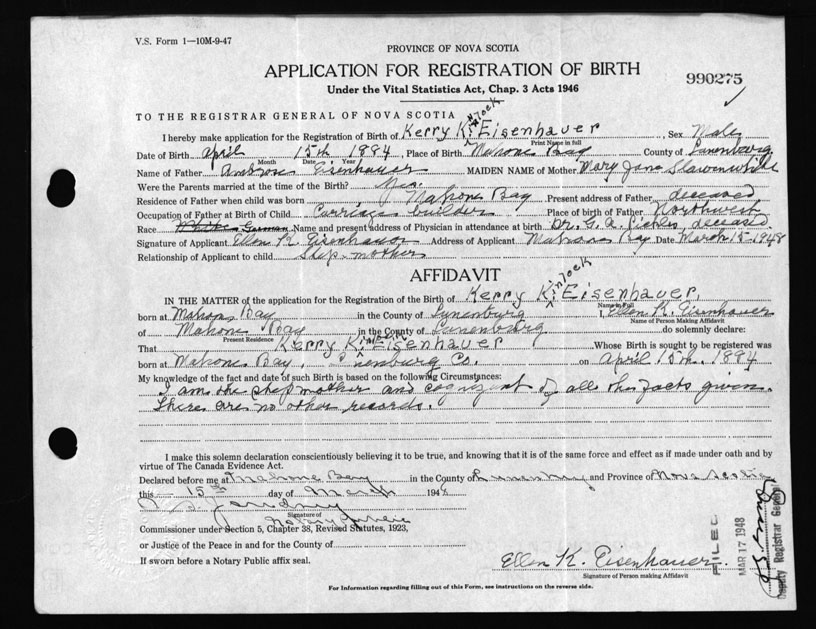 V.S. Form 1—10M-9-47
PROVINCE OF NOVA SCOTIA
APPLICATION FOR REGISTRATION OF BIRTH
990275
Under the Vital Statistics Act, Chap. 3 Acts 1946
TO THE REGISTRAR GENERAL OF NOVA SCOTIA
I hereby make application for the Registration of Birth of Kerry K. Eisenhauer, Sex Male
Print Name in full
Date of Birth April 15th 1884 Place of Birth Mahone Bay County of Lunenburg
Month Date Year
Name of Father Ambrose Eisenhauer MAIDEN NAME of Mother Mary Jane Slawenwhite
Were the Parents married at the time of the Birth? Yes.
Residence of Father when child was born Mahone Bay Present address of Father deceased
Occupation of Father at Birth of Child Carriage builder Place of birth of Father Northwest
Race White German Name and present address of Physician in attendance at birth Dr. deceased
Signature of Applicant Ellen K. Eisenhauer Address of Applicant Mahone Bay Date March 15-1948
Relationship of Applicant to child Step-mother
AFFIDAVIT
inlock
IN THE MATTER of the application for the Registration of the Birth of Kerry K. Eisenhauer,
Name in Full
born at Mahone Bay in the County of Lunenburg I, Ellen K. Eisenhauer
Name of Person Making Affidavit
of Mahone Bay in the County of Lunenburg do solemnly declare:
Present Residence
That Kerry K. Eisenhauer Whose Birth is sought to be registered was
born at Mahone Bay, Lunenburg Co. on April 15th. 1884
My knowledge of the fact and date of such Birth is based on the following Circumstances:
I am the step mother and cognizant of all the facts given.
There are no other records.
I make this solemn declaration conscientiously believing it to be true, and knowing that it is of the same force and effect as if made under oath and by
virtue of The Canada Evidence Act.
Declared before me at Mahone Bay in the County of Lunenburg and Province of Nova Scotia
this 15th day of March 1948
Signature of
Notary Public
Commissioner under Section 5, Chapter 38, Revised Statutes, 1923,
or Justice of the Peace in and for the County of
If sworn before a Notary Public affix seal.
Ellen K. Eisenhauer.
Signature of Person making Affidavit
FILED
MAR 17 1948
Deputy Registrar General
For Information regarding filling out of this Form, see instructions on the reverse side.